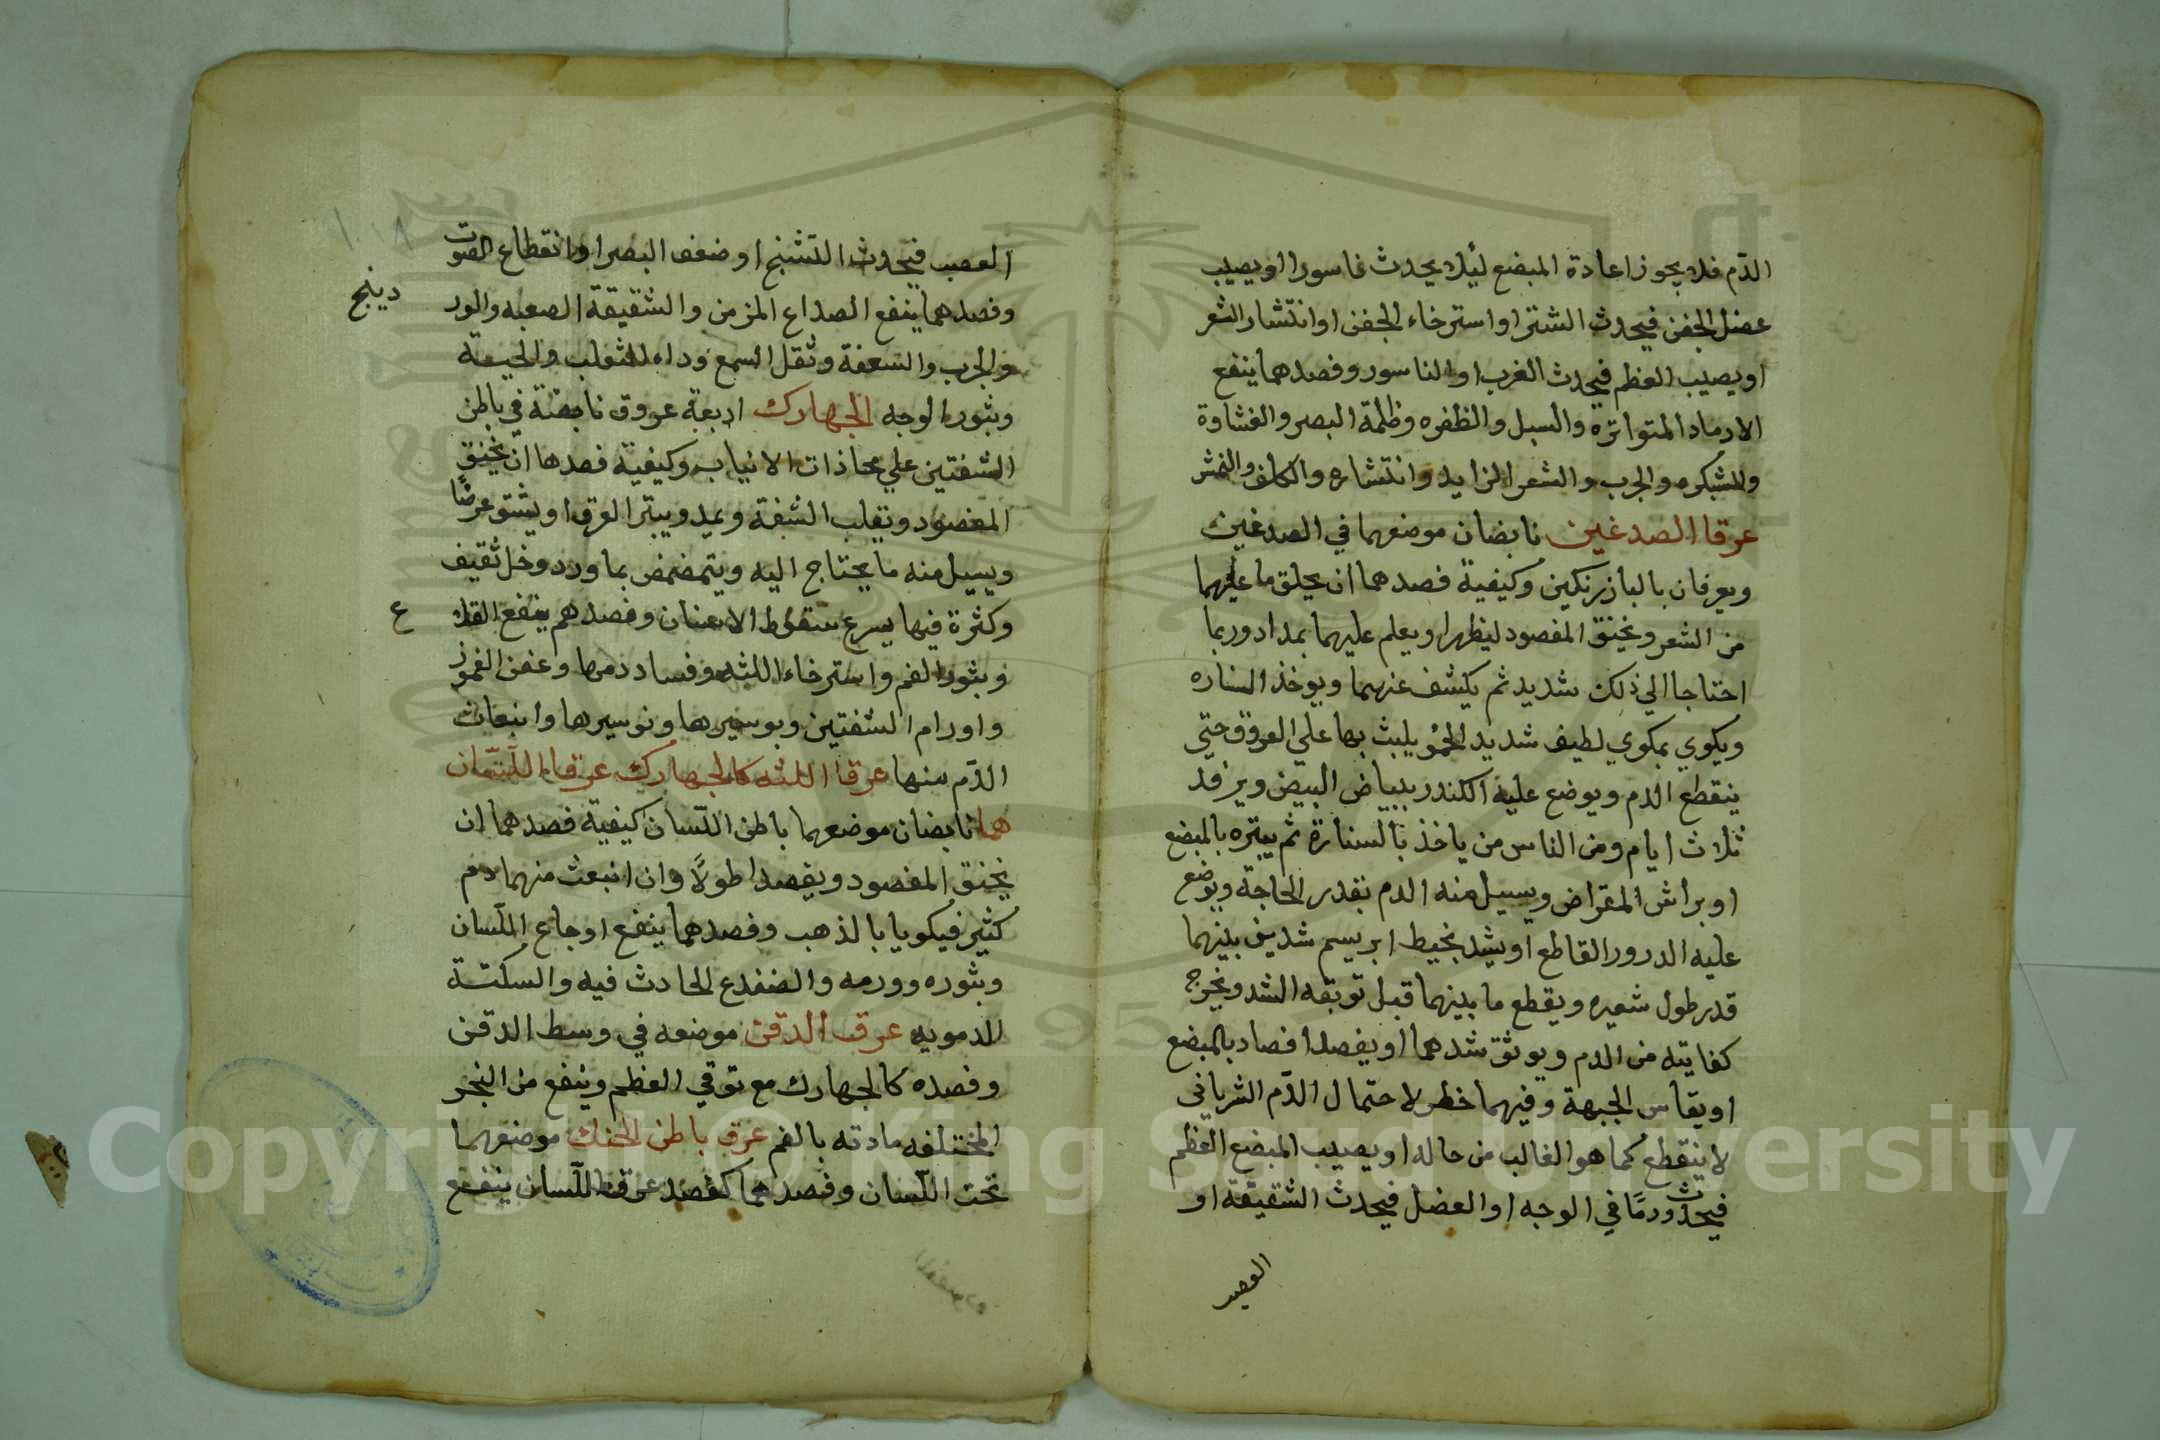 الدّم فلا يجوز اعادة المبضع ليُلا يحدث ناسورا او يصيب
عضل الجفن فيحدث الشتر او استرخاء الجفن او انتشار الشعر
او يصيب العظم فيحدث الغرب او الناسور وفصدهما ينفع
الارماد المتواتره والسبل والظفره وظلمة البصر والغشاوة
والشبكره والجرب والشعر الزايد وانتشاره والكلف والنمش
عرقا الصدغين نابضان موضعهما في الصدغين
ويعرفان بالبازرنكين وكيفية فصدهما ان يحلق ما عليهما
من الشعر ويخنق المفصود ليظهرا ويعلم عليهما بمداد وربما
احتاجا الي ذلك شديد ثم يكشف عنهما ويوخذ السناره
ويكوي بمكوي لطيف شديد الحمُو يلبث بها علي العروق حتي
ينقطع الدم ويوضع عليه الكندر ببياض البيض ويرفد
ثلاث ايام ومن الناس من ياخذ بالسنارة ثم يبتره بالمبضع
او براش المقراض ويسيل منه الدم بقدر الحاجة ويوضع
عليه الدرور القاطع او يشد بخيط ابريسم شدين بينهما
قدر طول شعيره ويقطع ما بينهما قبل توبقه الشد ويخرج
كفايته من الدم ويوثق شدهما او يفصدا فصاد بالمبضع
او بفاس الجبهة وفيهما خطر لاحتمال الدّم الشرياني
لا ينقطع كما هو الغالب من حاله او يصيب المبضع العظم
فيحدث ورمًا في الوجه او العضل فيحدث الشقيقة او
العصب
العصب فيحدث التشنج او ضعف البصر او انقطاع الصوت
وفصدهما ينفع الصداع المزمن والشقيقة الصعبه والور
دينج
والجرب والسعفة وثقل السمع وداء الثعلب والحية
وبثور الوجه الجهارك اربعة عروق نابضة في باطن
الشفتين علي محاذات الانياب وكيفية فصدها ان يخنق
المفصود ويقلب الشفة ويمد ويبتر العرق او يشق عرضًا
ويسيل منه ما يحتاج اليه ويتمضمض بماورد وخل ثقيف
وكثرة فيها يسرع سقوط الاسنان وفصدهم ينفع القلا
ع
وبثور الفم واسترخاء اللثه وفساد دمها وعفن الغموز
واورام الشفتين وبوسيرها ونوسيرها وانبعاث
الدّم منها عرقا اللثه كالجهارك عرقا اللّسان
هما نابضان موضعهما باطن اللّسان كيفية فصدهما ان
يخنق المفصود ويفصدا طولاً وان انبعث منهما دم
كثير فيكويا بالذهب وفصدهما ينفع اوجاع اللّسان
وبثوره وورمه والضفدع الحادث فيه والسكتة
الدمويه عرق الدقن موضعه في وسط الدقن
وفصده كالجهارك مع توقي العظم وينفع من البخر
المختلفه مادته بالفم عرق باطن الحنك موضعهما
تحت اللّسان وفصدهما كفصد عرقا اللّسان ينفع
Copyright © King Saud University